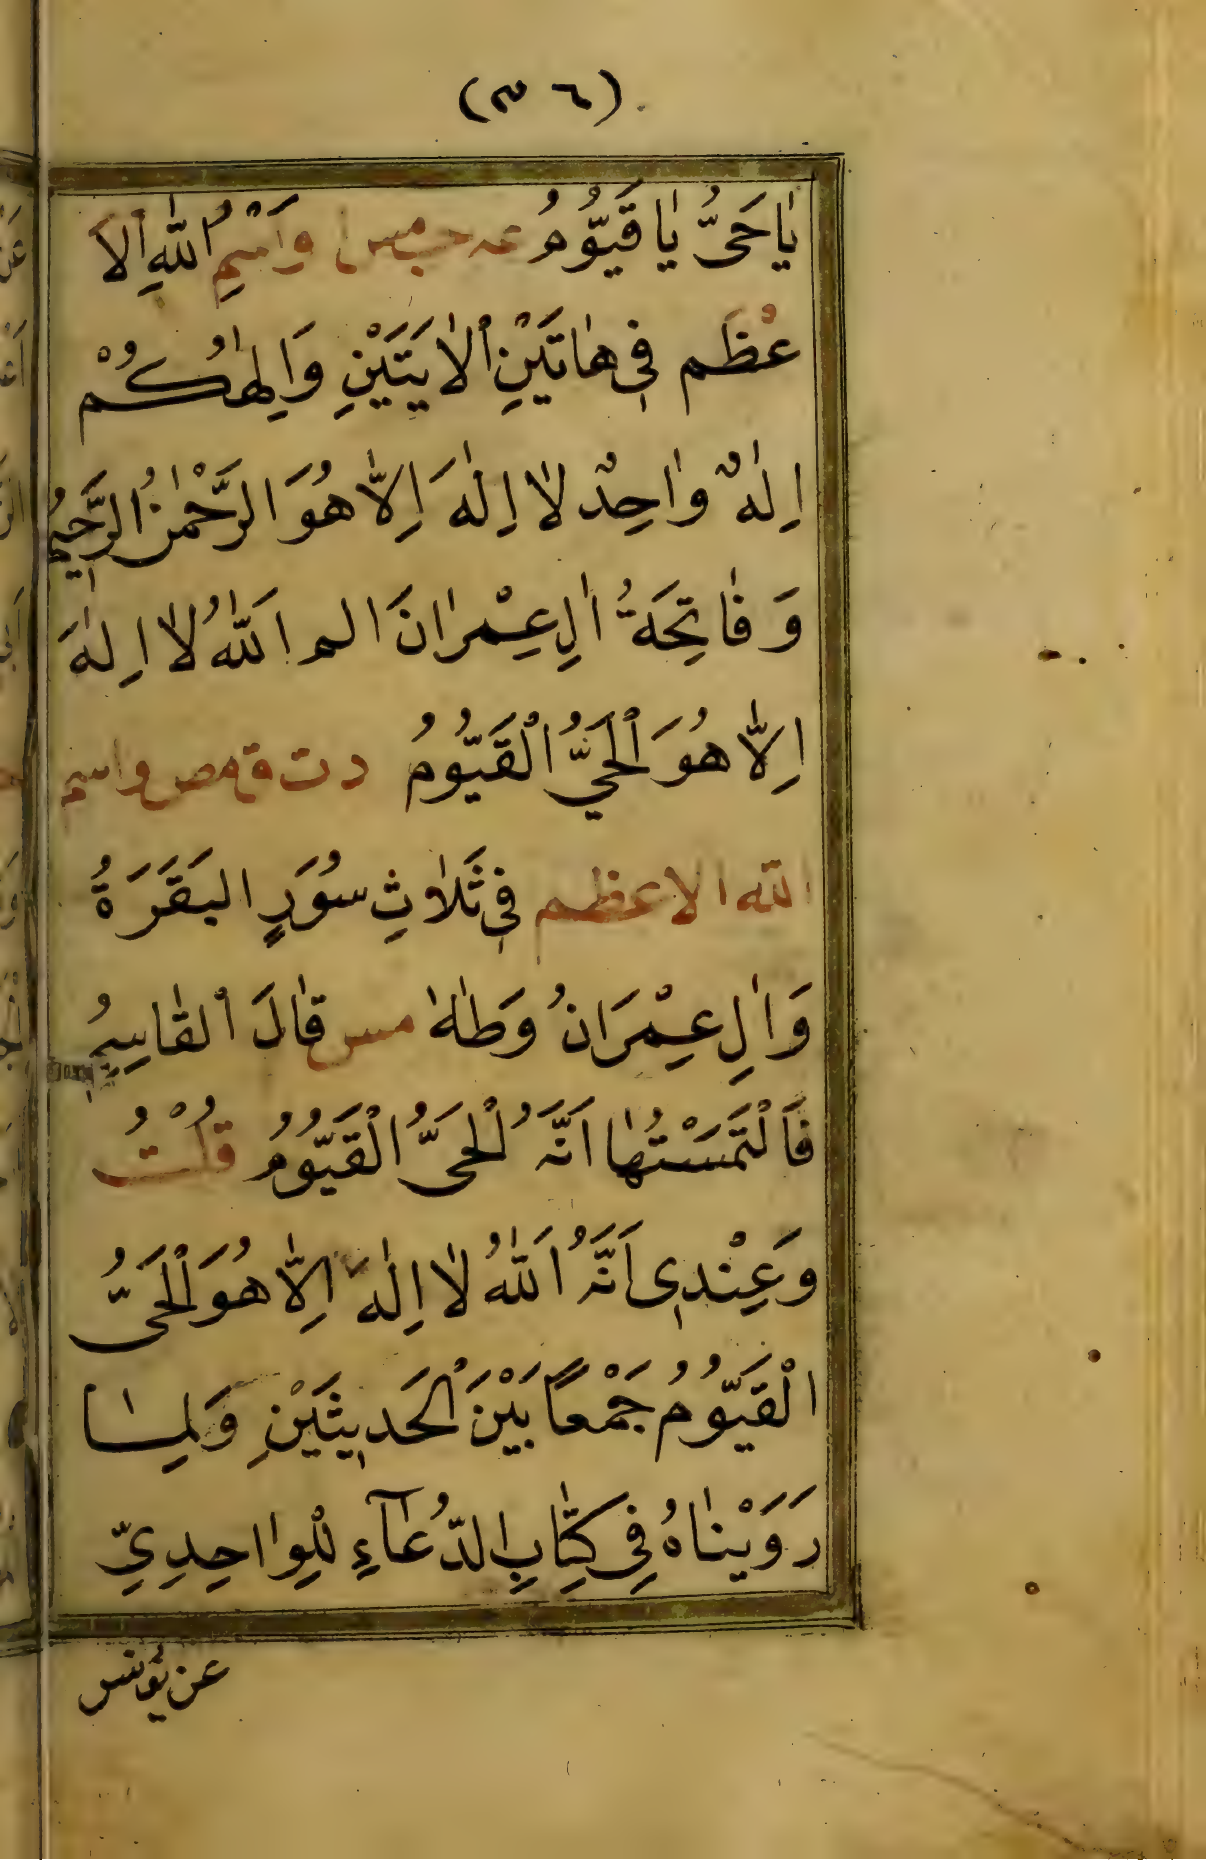 (٣٦)
يَا حَىُّ يَا قَيُّومُ عه حب مس وَاسْمُ اللّٰهِ الْاَ
عْظَم فِى هَاتَيْنِ الْاٰيَتَيْنِ وَاِلٰهُكُمْ
اِلٰهٌ وَاحِدٌ لَا اِلٰهَ اِلَّا هُوَ الرَّحْمٰنُ الرَّحِيمُ
وَفَاتِحَةُ اٰلِ عِمْرَانَ الم اَللّٰهُ لَا اِلٰهَ
اِلَّا هُوَ الْحَيُّ الْقَيُّومُ د ت ق مص واسم
اللّٰه الاعظم فِى ثَلَاثِ سُوَرٍ البَقَرَةُ
وَاٰلِ عِمْرَانُ وَطٰهٰ مس قَالَ الْقَاسِمُ
فَالْتَمَسْتُهَا اَنَّهُ الْحَىُّ الْقَيُّومُ قُلْتُ
وَعِنْدِى اَنَّهُ اَللّٰهُ لَا اِلٰهَ اِلَّا هُوَ الْحَىُّ
الْقَيُّومُ جَمْعاً بَيْنَ الْحَدِيثَيْنِ وَلِمَا
رَوَيْنَاهُ فِى كِتَابِ الدُّعَآءِ لِلْوَاحِدِيِّ
عن يونس